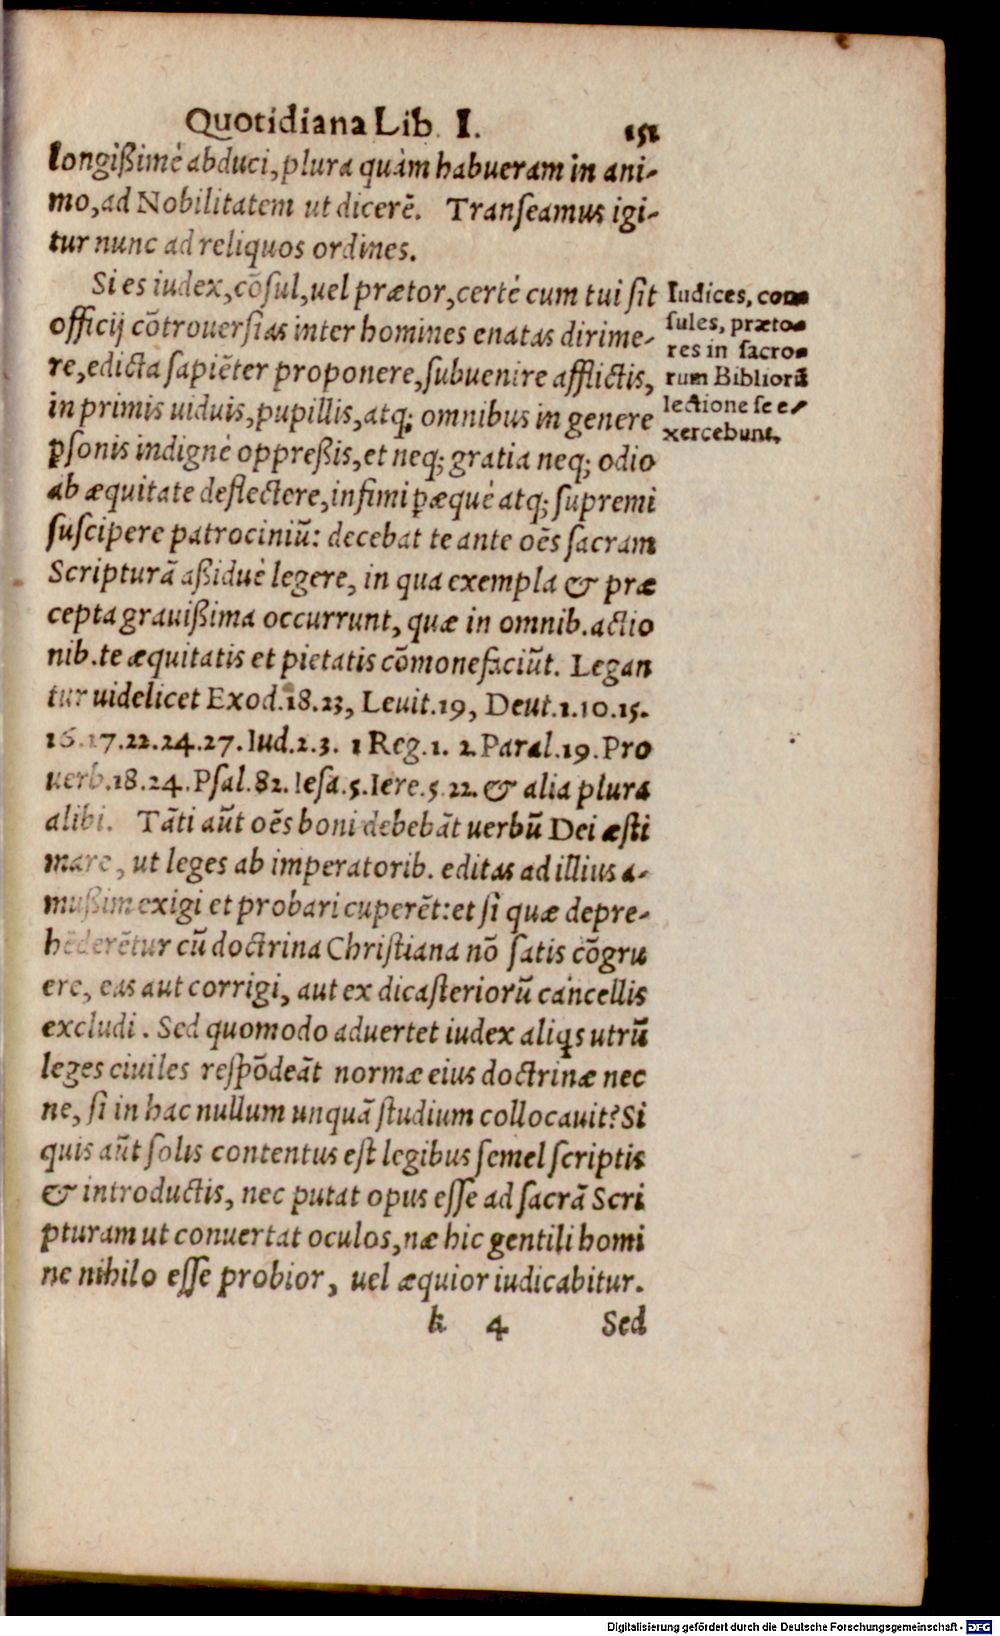 Quotidiana Lib. I. 151
longißimè abduci, plura quàm habueram in ani-
mo, ad Nobilitatem ut dicerē. Transeamus igi-
tur nunc ad reliquos ordines.
Si es iudex, cōsul, uel prætor, certè cum tui sit
officij cōtrouersias inter homines enatas dirime-
re, edicta sapiēter proponere, subuenire afflictis,
in primis uiduis, pupillis, atq; omnibus in genere
ꝑsonis indignè oppreßis, et neq; gratia neq; odio
ab æquitate deflectere, infimi ꝑæquè atq; supremi
suscipere patrociniū: decebat te ante oēs sacram
Scripturā aßiduè legere, in qua exempla & præ
cepta grauißima occurrunt, quæ in omnib. actio
nib. te æquitatis et pietatis cōmonefaciūt. Legan
tur uidelicet Exod.18.23, Leuit.19, Deut.1.10.15.
16.17.22.24.27. Iud.2.3. 1 Reg.1. 2. Paral.19. Pro
uerb.18.24. Psal.82. Iesa.5. Iere.5.22. & alia plura
alibi. Tāti aūt oēs boni debebāt uerbū Dei æsti
mare, ut leges ab imperatorib. editas ad illius a-
mußim exigi et probari cuperēt: et si quæ depre-
hēderētur cū doctrina Christiana nō satis cōgru
ere, eas aut corrigi, aut ex dicasteriorū cancellis
excludi. Sed quomodo aduertet iudex aliqs utrū
leges ciuiles respōdeāt normæ eius doctrinæ nec
ne, si in hac nullum unquā studium collocauit? Si
quis aūt solis contentus est legibus semel scriptis
& introductis, nec putat opus esse ad sacrā Scri
pturam ut conuertat oculos, næ hic gentili homi
ne nihilo esse probior, uel æquior iudicabitur.
k 4 Sed
Iudices, con
sules, præto-
res in sacro-
rum Bibliorū
lectione se e-
xercebunt.
Digitalisierung gefördert durch die Deutsche Forschungsgemeinschaft - DFG